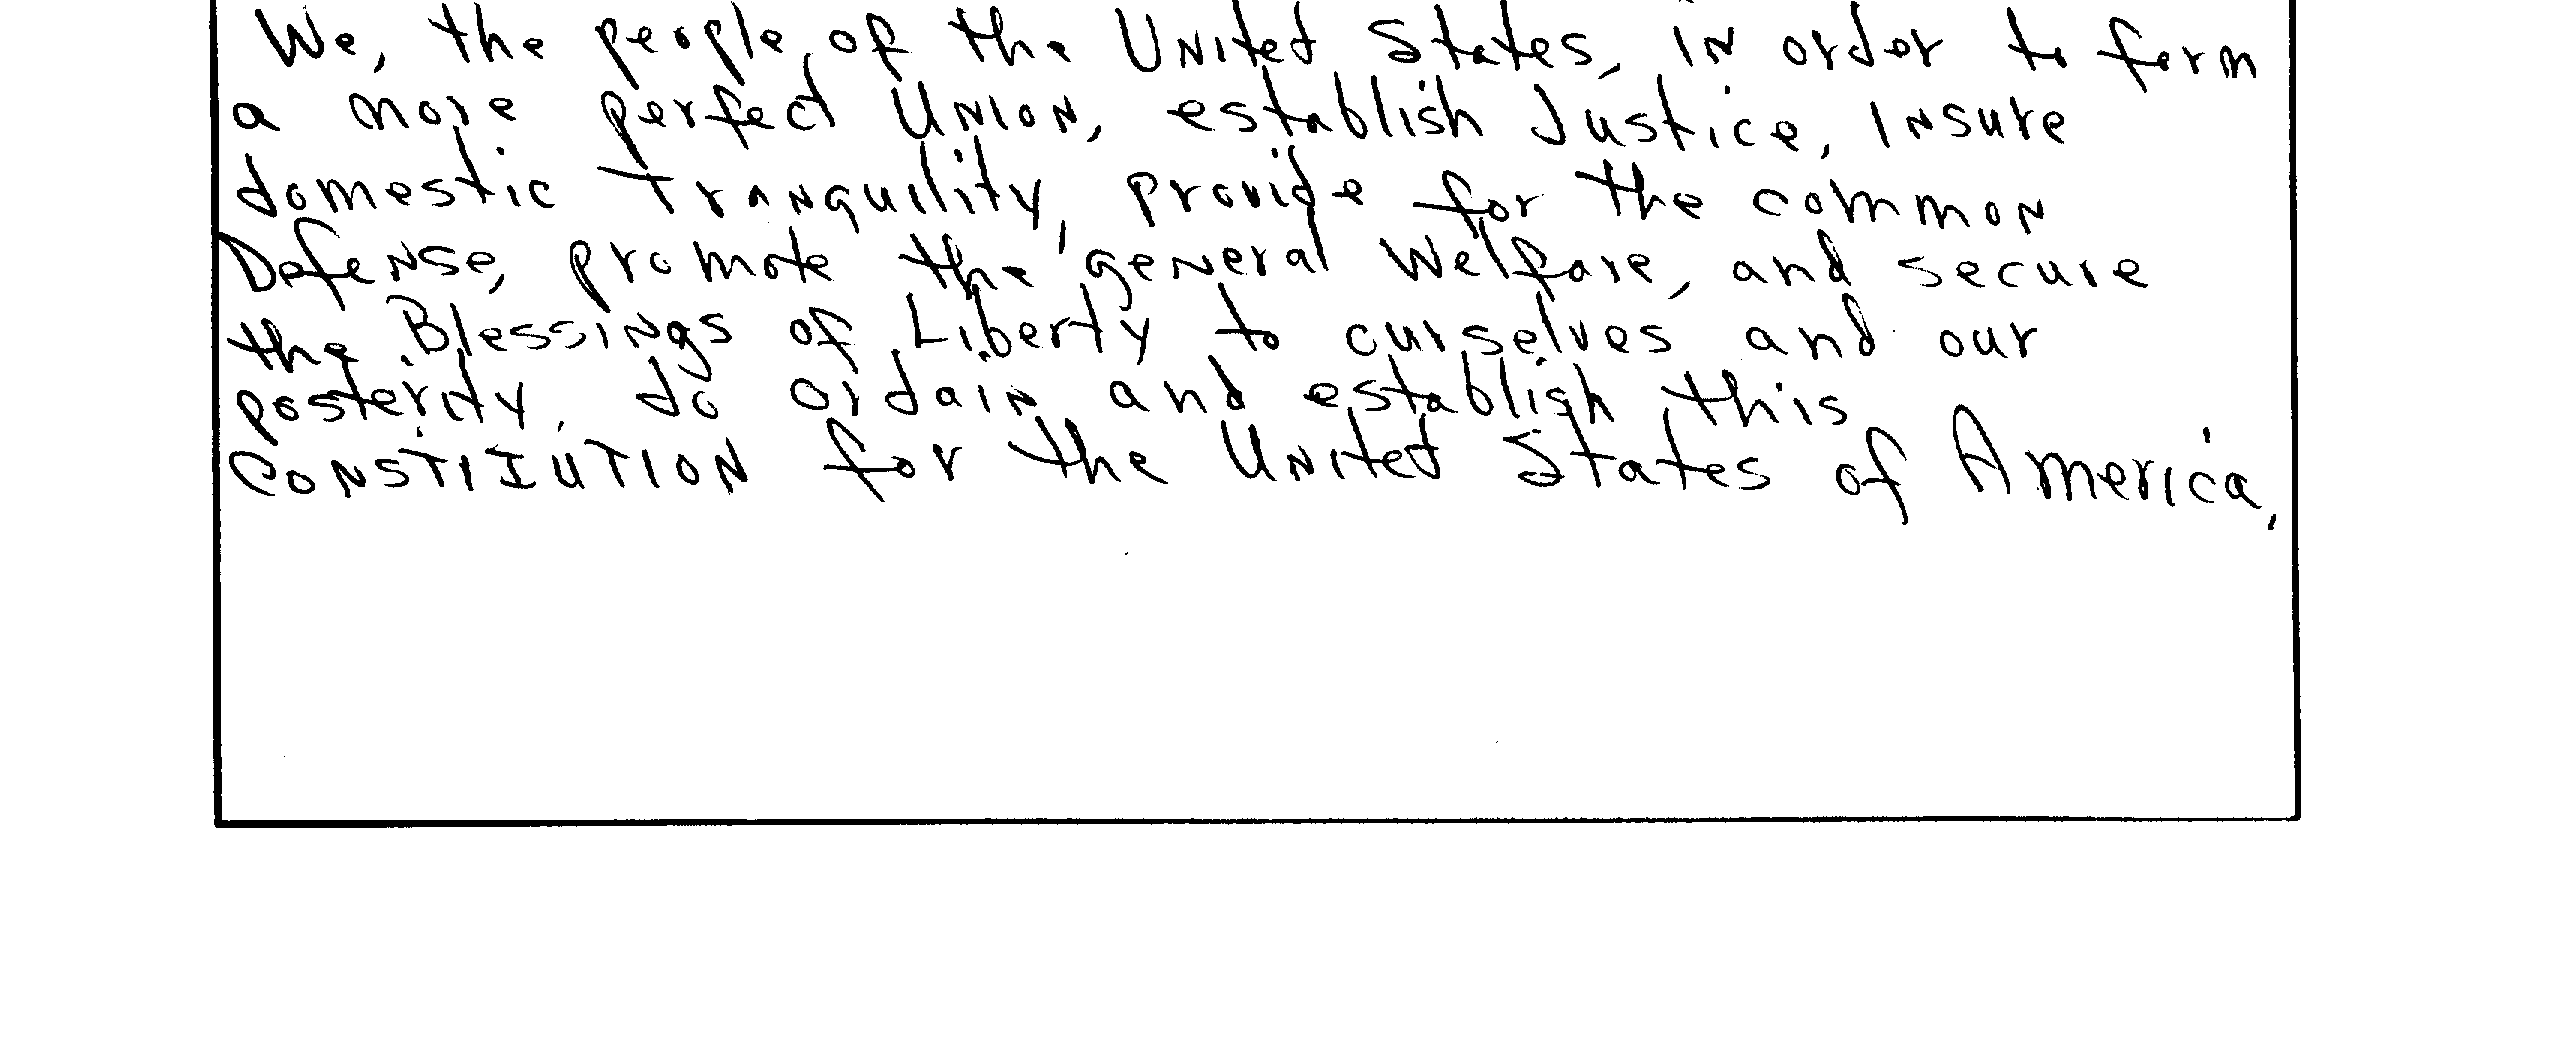 We, the people of the United States, in order to form
a more perfect Union, establish Justice, Insure
domestic Tranquility, provide for the common
Defense, promote the general Welfare, and secure
the Blessings of Liberty to ourselves and our
posterity, do ordain and establish this
CONSTITUTION for the United States of America.